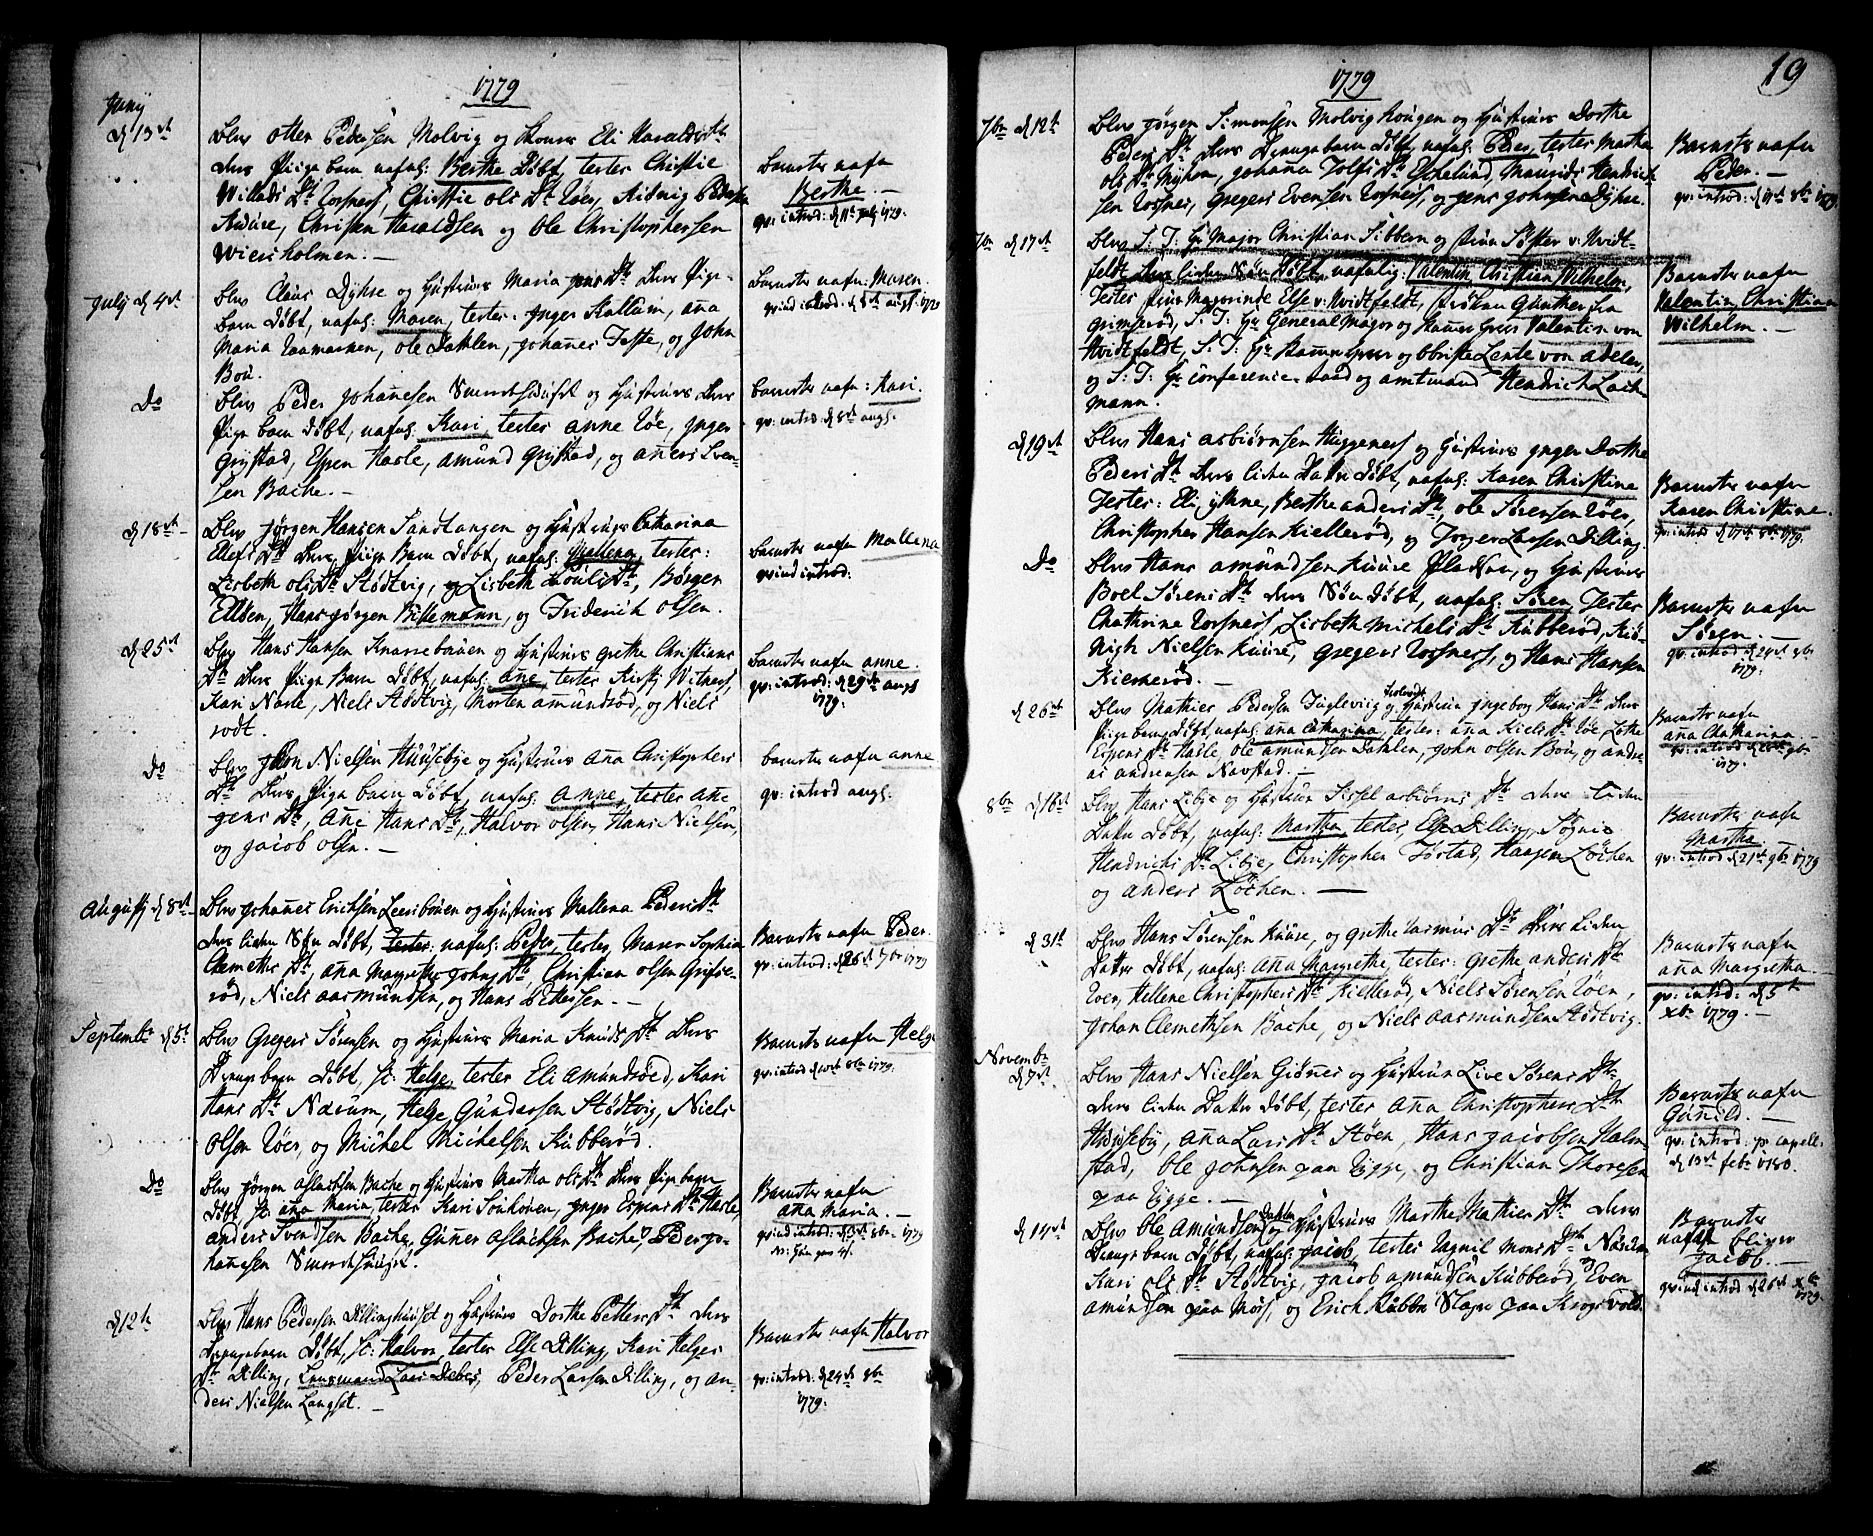 1779
Junÿ
d. 13de
Blev Otter Pedersen Molvig og Kones Eli Haralds Dtr
deres Pige barn nafnl: Berthe Døbt, tester Christie
Willads Dtr Torsnes, Christie Ols Dtr Røer, Pedersen
Andure, Christen Haraldsen og Ole Christophersen
Wiersholmen. —
Barnets nafn
Berthe. —
qv: introd: d. 11te July 1779.
July d. 4de
Blev Claus Dyhse og Hustrues Maria Jens Dtr deres Pige-
barn Døbt, nafnl: Maren, tester: Inger Skallum, Ana
Maria Raamarken, Ole Dahlen, Johanes Tofte, og John
Bou.
Barnets nafn Maren.
qvind introd: d. 8de augs. 1779
Do
Blev Peder Johanesen Smertshuuset og Hustrues deres
Pige barn Døbt, nafnl: Kari, tester Anne Røe, Inger
Grystad, Espen Hasle, Amund Grystad, og Anders Sven-
sen Bache. —
Barnets nafn: Kari.
qv: introd: d. 8de augs.
d. 18de
Blev Jørgen Hansen Sandtangen og Hustrues Catharina
Ellefs Dtr deres Pige Barn Døbt, nafnl: Mallena, tester:
Lisbeth Ols Dtr Stødtvig, og Lisbeth Pouls Dtr, Børger
Ellsen, Hans Jørgen Billemann, og Friderich Olsen.
Barnets nafn Mallena
qvind introd:
d. 25de
Blev Hans Hansen Knarrebauen og Hustrues Grethe Christians
Dtr deres Pige Barn Døbt, nafnl: Ane, tester Kirstj Witnes,
Kari Narle, Niels Stødtvig, Morten Amundrød, og Niels
rodt.
Barnets nafn Anne.
qv: introd: d. 29de augs
1779.
Do
Blev John Nielsen Huusebye og Hustrues Ana Christophers
Dtr deres Pige barn Døbt, nafnl: Anne, tester Ane
Jens Dtr, Ane Hans Dtr, Halvor Olsen, Hans Nielsen,
og Jacob Olsen. —
Barnets nafn Anne
qv: introd augs.
Augustj d. 8de
Blev Johannes Erichsen Leersbauen og Hustrues Mallena Peders Dtr
deres liden Søn Døbt, tester: nafnl: Peder, tester, Maren Sophia
Clemets Dtr, Ana Magrethe Johns Dtr, Christian Olsen Grifse-
rød, Niels Aasmundsen, og Hans Pettersen. —
Barnets nafn Peder.
qv: introd: d. 26de 7br 1779
Septembr d. 5te
Blev Gregers Sørensen og Hustrues Maria Knuds Dtr deres
Drenge barn Døbt, k: Helge, tester Eli Amundsrøed, Kari
Hans Dtr Nærum, Helge Gundersen Stødtvig, Niels
Olsen Røer, og Michel Michelsen Kubberød.
Barnets nafn Helge
qv: introd d. 10de 8br 1779.
Do
Blev Jørgen Aslachsen Bache og Hustrues Martha Ols Dtr deres Pige barn
Døbt, k: Ana Maria, tester Kari Inger Espens Dtr Hasle,
Anders Svendsen Bache, Guner Aslachsen Bache, og Peder Jo-
hanesen Smertshuuset.
Barnets nafn
Ana Maria. —
qvind introd: 8br 1779
d. 12te
Blev Hans Pedersen Dillinghuuset og Hustrues Dorthe Petters Dtr deres
drengebarn Døbt, k: Halvor, tester Else Dilling, Kari Helges
Dtr Dilling, Lars Debes, Peder Larsen Dilling, og An-
ders Nielsen Langset. —
Barnets nafn Halvor
qv: introd: d. 24de 8br
1779.
1779
19
7br d. 12te
Blev Jørgen Simonsen Molvig Kongen og Hustrues Dorthe
Peders Dtr deres Drengebarn Døbt, nafnl: Peder, tester Martha
Ols Dtr Nyhom, Johana Tolfs Dtr Eskelund, Maurids Hendrich-
sen Torsnes, Gregers Evensen Torsnes, og Jens Johnsen Dyhse.
Barnets nafn
Peder. —
qv: introd: d. 17de 8br 1779.
7br d. 17de
Blev S. T: Hr Major Christian Sibbern og frue Søster v: Hvidt-
feldt deres liden Søn Døbt, nafnlig: Valentin Christian Wilhelm,
Tester frue Majorinde Else v: Hvidtfeldt, frøken Gunther fra
Grimserød, S. T: Hr General Major og Kammer Herre Valentin von
Hvidtfeldt, S. T: Hr Kammer Herre og Obriste Lente von Adeler,
og S: T: Hr Conference-raad og amtmand Hendrich Lach-
mann.
Barnets nafn
Valentin Christian
Wilhelm. —
d. 19de
Blev Hans Asbiørnsen Huggenes og Hustrues Inger Dorthe
Peders Dtr deres liden Datter Døbt, nafnl: Karen Christine
Tester: Eli Berthe Anders Dtr, Ole Sørensen Røer,
Christopher Hansen Kiellerød, og Torger Larsen Dilling.
Barnets nafn
Karen Christine.
qv: introd d. 17de 8br 1779.
Do
Blev Hans Amundsen Kuure Pladsen, og Hustrues
Boel Sørens Dtr deres Søn Døbt, nafnl: Søren, Tester
Chathrine Torsnes, Lisbeth Michels Dtr Kubberød,
Nielsen Kuure, Gregers Torsnes, og Hans Hansen
Kierserød. —
Barnets nafn
Søren. —
qv: introd d. 24de 8br
1779.
d. 26de
Blev Mathies Pedersen Fuglevig og Hustrue Ingeborg Hans Dtr deres
Pige barn Døbt, nafnl: Ana Catharina, tester: Ana Niels Dtr Røe, Lethe
Espens Dtr Hasle, Ole Amundsen Dahlen, John Olsen Bou, og Andre-
as Andreasen Navstad. —
Barnets nafn
Ana Chatharina. —
1779.
8br d. 16de
Blev Hans Libje og Hustrue Sissel Asbiørns Dtr deres liden
Datter Døbt, nafnl: Martha, tester, Else Dilling, Søgnie
Hendrichs Dtr Libje, Christopher Torstad, Haagen Løchen
og Anders Løchen. —
Barnets nafn
Martha
qv: introd d. 21de 9br 1779
d. 31te
Blev Hans Sørensen Kuure, og Grethe Rasmus Dtr deres liden
Datter Døbt, nafnl: Ana Margrethe, tester: Grethe Anders Dtr
Røer, Hellene Christophers Dtr Kiellerød, Niels Sørensen Røer,
Johan Clemethsen Bache, og Niels Aasmundsen Stødtvig.
Barnets nafn
Ana Margretha.
qv: introd: d. 5te
xbr 1779. —
Novembr
d. 7de
Blev Hans Nielsen Giønes og Hustrue Live Sørens Dtr
deres liden Datter Døbt, tester Ana Christophers Dtr
Huusebÿ, Ana Lars Dtr Støen, Hans Jacobsen Halm-
stad, Ole Johnsen paa Rygge, og Christian Thoresen
paa Rygge. —
Barnets nafn
Gunild. —
qv: introd: pr Capell:
d. 13de febr 1780.
d. 14de
Blev Ole Amundsen Dahlen og Hustrues Marthe Mathies Dtr deres
Drenge barn Døbt, nafnl: Jacob, tester Ragnil Mons Dtr Nærum
Kari Ols Dtr Stødtvig, Jacob Amundsen Kubberød, Even
Amundsen paa Mos, og Erich paa Skogsvold.
Barnets
nafn bliver
Jacob. —
qvind introd d. 26de xbr
1779.